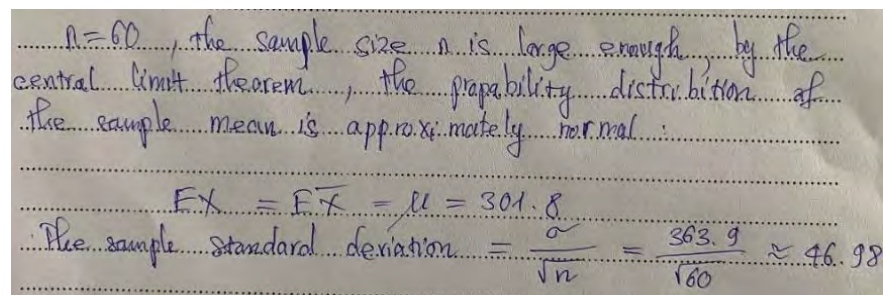 n = 60, the sample size n is large enough, by the
central limit theorem, the prapability distribition of
the sample mean is approximately normal :
EX = EX̅ = μ = 301.8
The sample standard deviation = σ/√n = 363.9/√60 ≈ 46.98